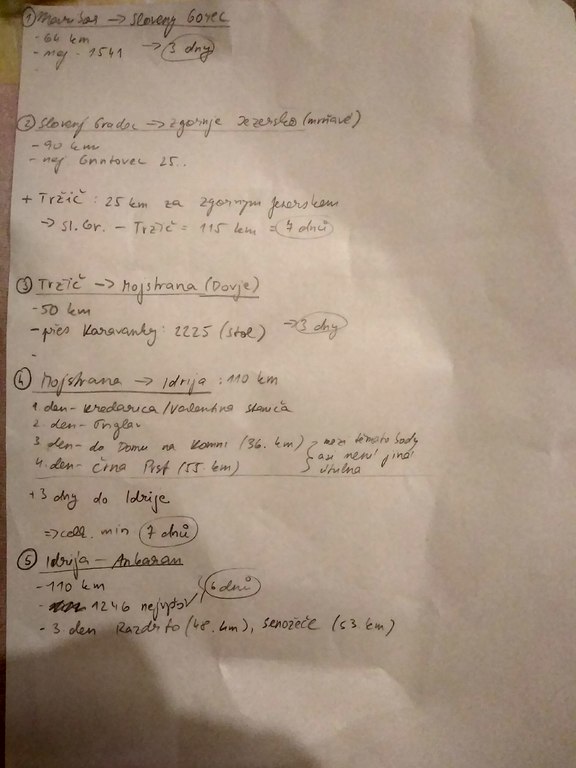 ① Maribor → Slovenj Gorec
- 64 km
- nej - 1541 → 3 dny
② Slovenj Gradec → Zgornje Jezersko (mrňavé)
- 90 km
- nej Grintovec 25..
+ Tržič : 25 km za Zgornym Jezerskem
→ Sl. Gr. - Tržič = 115 km = 7 dnů
③ Tržič → Mojstrana (Dovje)
- 50 km
- přes Karavanky: 2225 (Stol) → 3 dny
-
④ Mojstrana → Idrija : 110 km
1. den - Kredarica/Valentina Staniča
2. den - Triglav
3. den - do Domu na Komni (36. km) } mezi těmato body
4. den - Črna Prst (55. km) } asi není jiná útulna
+ 3 dny do Idrije
⇒ celk. min 7 dnů
⑤ Idrija - Ankaran
- 110 km
- 1246 nejvyšší 6 dnů
- 3. den Razdrto (48. km), Senožeče (53. km)